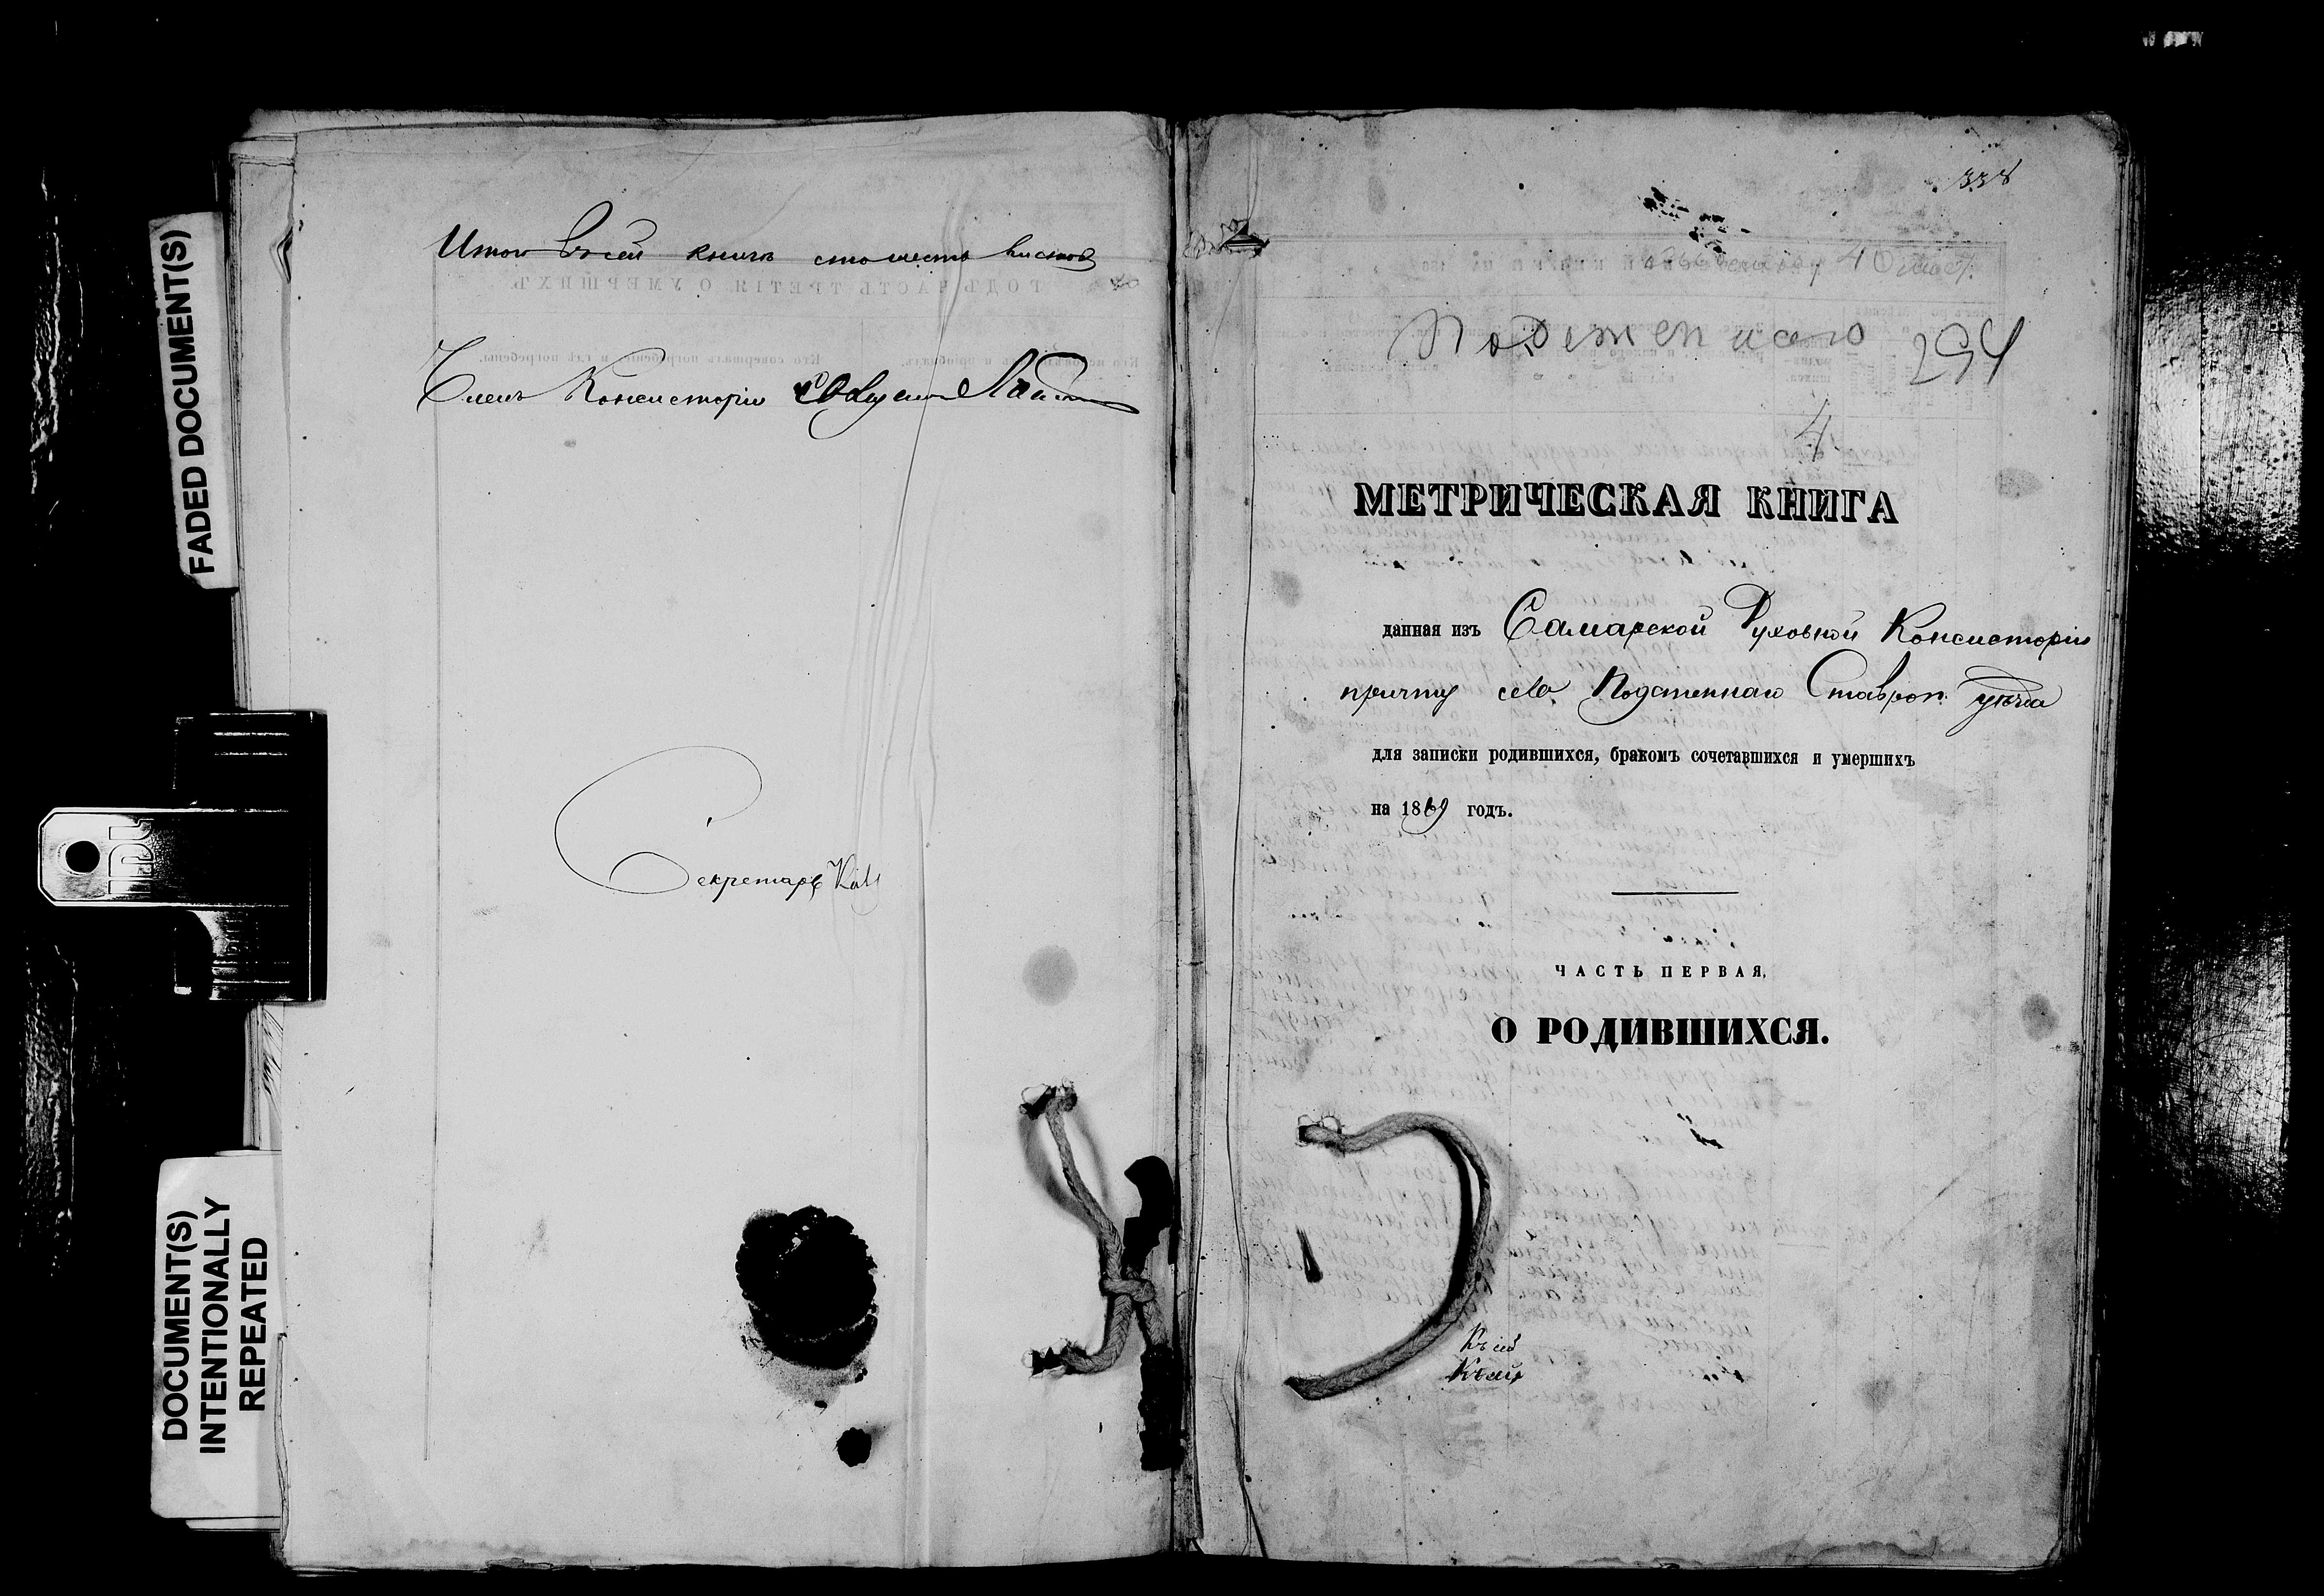 FADED DOCUMENT(S)
DOCUMENT(S)
INTENTIONALLY
REPEATED
Итого въ сей книгѣ сто шесть листовъ
Членъ Консисторіи
Секретарь
338
294
4
МЕТРИЧЕСКАЯ КНИГА
данная изъ Самарской Духовной Консисторіи
причту села Подстепнаго Ставроп. уѣзда
для записки родившихся, бракомъ сочетавшихся и умершихъ
на 1869 годъ.
ЧАСТЬ ПЕРВАЯ,
О РОДИВШИХСЯ.
Къ сей